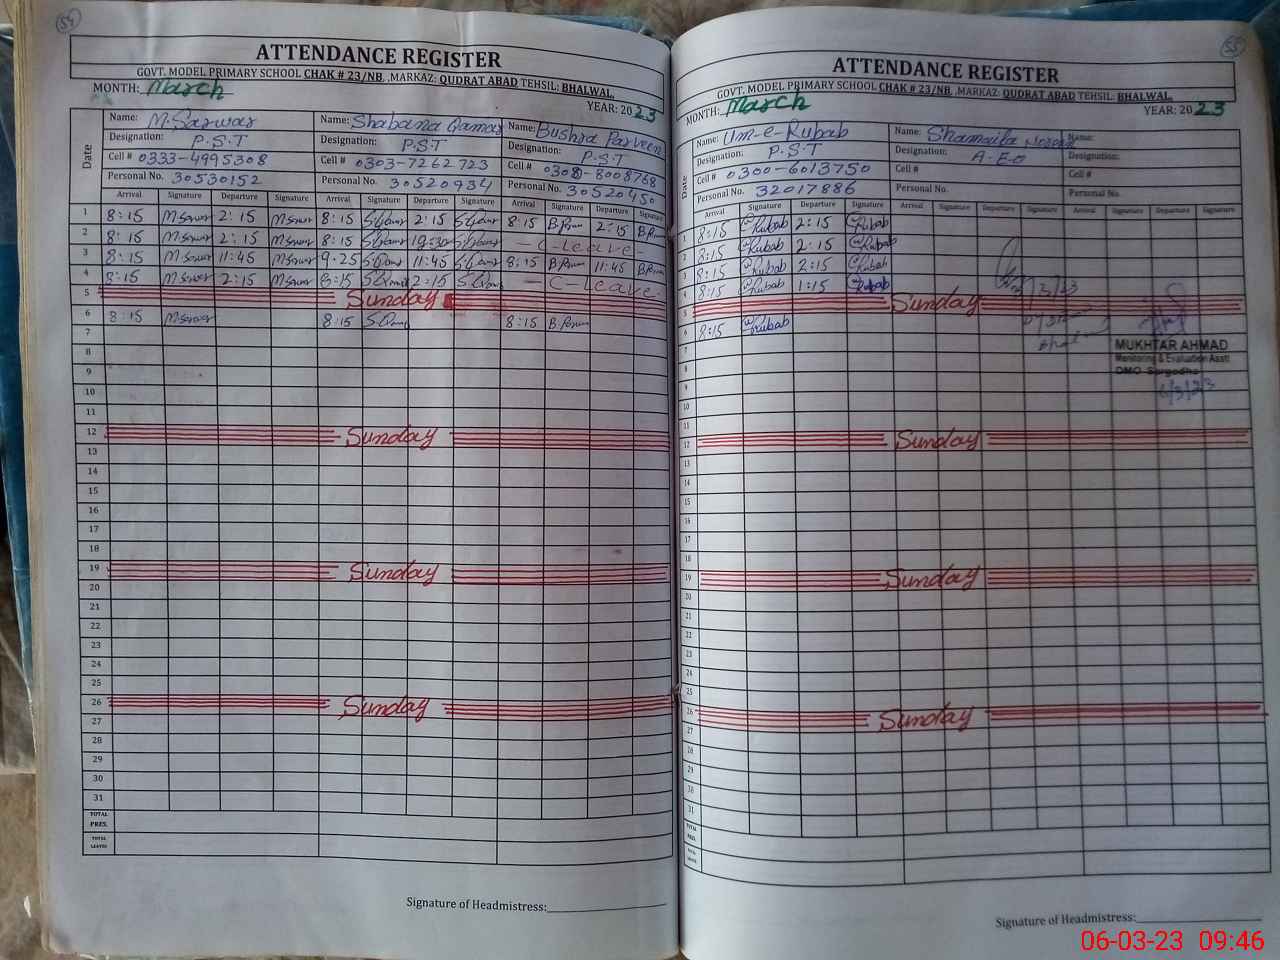 54
ATTENDANCE REGISTER
GOVT. MODEL PRIMARY SCHOOL CHAK # 23/NB, ,MARKAZ: QUDRAT ABAD TEHSIL: BHALWAL
MONTH: March
YEAR: 2023
Date
Name: M.Sarwar Name: Shabana Qamar Name: Bushra Parveen
Designation: P.S.T P.S.T Designation: P.S.T
Cell # 0333-4995308 Cell # 0303-7262723 Cell # 0308-8008768
Personal No. 30530152 Personal No. 30520934 Personal No. 30520450
Arrival Signature Departure Signature Arrival Signature Departure Signature Arrival Signature Departure Signature
1 8:15 M.Sarwar 2:15 M.Sarwar 8:15 S.Qamar 2:15 S.Qamar 8:15 B.Parveen 2:15
2 8:15 M.Sarwar 2:15 M.Sarwar 8:15 S.Qamar S.Qamar - C-Leave -
3 8:15 M.Sarwar 11:45 M.Sarwar 9:25 S.Qamar 11:45 S.Qamar 8:15 B.Parveen 11:45
4 8:15 M.Sarwar 2:15 M.Sarwar 8:15 S.Qamar 2:15 S.Qamar - C-Leave
5 Sunday
6 8:15 M.Sarwar 8:15 S.Qamar 8:15 B.Parveen
7
8
9
10
11
12 Sunday
13
14
15
16
17
18
19 Sunday
20
21
22
23
24
25
26 Sunday
27
28
29
30
31
TOTAL PRES.
TOTAL LEAVES
Signature of Headmistress:
55
ATTENDANCE REGISTER
GOVT. MODEL PRIMARY SCHOOL CHAK # 23/NB, ,MARKAZ: QUDRAT ABAD TEHSIL: BHALWAL
MONTH: March
YEAR: 2023
Date
Name: Um-e-Rubab Name: Shamaila Name:
Designation: P.S.T Designation: A-E-O Designation:
Cell # 0300-6013750 Cell # Cell #
Personal No. 32017886 Personal No. Personal No.
Arrival Signature Departure Signature Arrival Signature Departure Signature Arrival Signature Departure Signature
1 8:15 Rubab 2:15 Rubab
2 8:15 Rubab 2:15 Rubab
3 8:15 Rubab 2:15 Rubab
4 8:15 Rubab 1:15 Rubab
5 Sunday
6 8:15 Rubab
7
MUKHTAR AHMAD
Monitoring & Evaluation Asstt
DMO Sargodha
6/3/23
8
9
10
11
12 Sunday
13
14
15
16
17
18
19 Sunday
20
21
22
23
24
25
26 Sunday
27
28
29
30
31
TOTAL PRES.
TOTAL LEAVES
Signature of Headmistress:
06-03-23 09:46